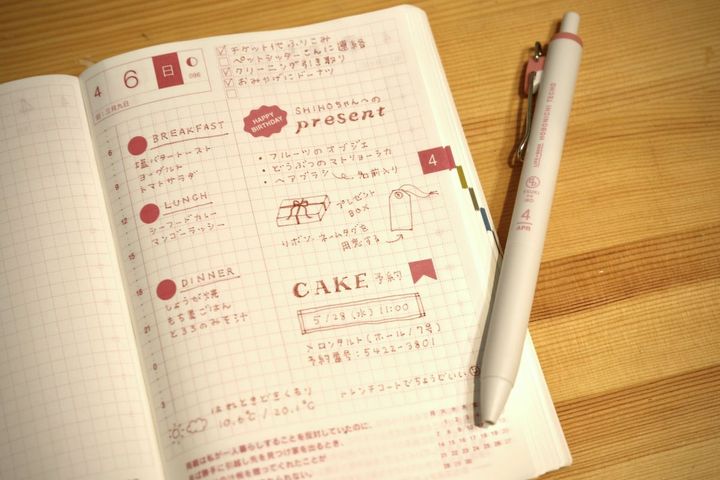 4 6 日 096
チケット代ふりこみ
ペットシッターさんに連絡
クリーニング引き取り
おみやげにドーナツ
HAPPY BIRTHDAY
SHIHOちゃんへの
present
・フルーツのオブジェ
・どうぶつのマトリョーシカ
・ヘアブラシ 名前入り
プレゼント
BOX
リボン、ネームタグを
用意する
4
BREAKFAST
塩バタートースト
ヨーグルト
トマトサラダ
LUNCH
シーフードカレー
マンゴーラッシー
DINNER
しょうが焼
もち麦ごはん
とろろのみそ汁
6
9
12
15
18
21
3
CAKE 予約
5/28(水) 11:00
メロンタルト(ホール/7号)
予約番号:5422-3801
トレンチコートでちょうどいい
はれときどきくもり
10.6℃/20.1℃
両親は私が一人暮らしすることを反対していたのに、
HOBONICHI TECHO
4
APR